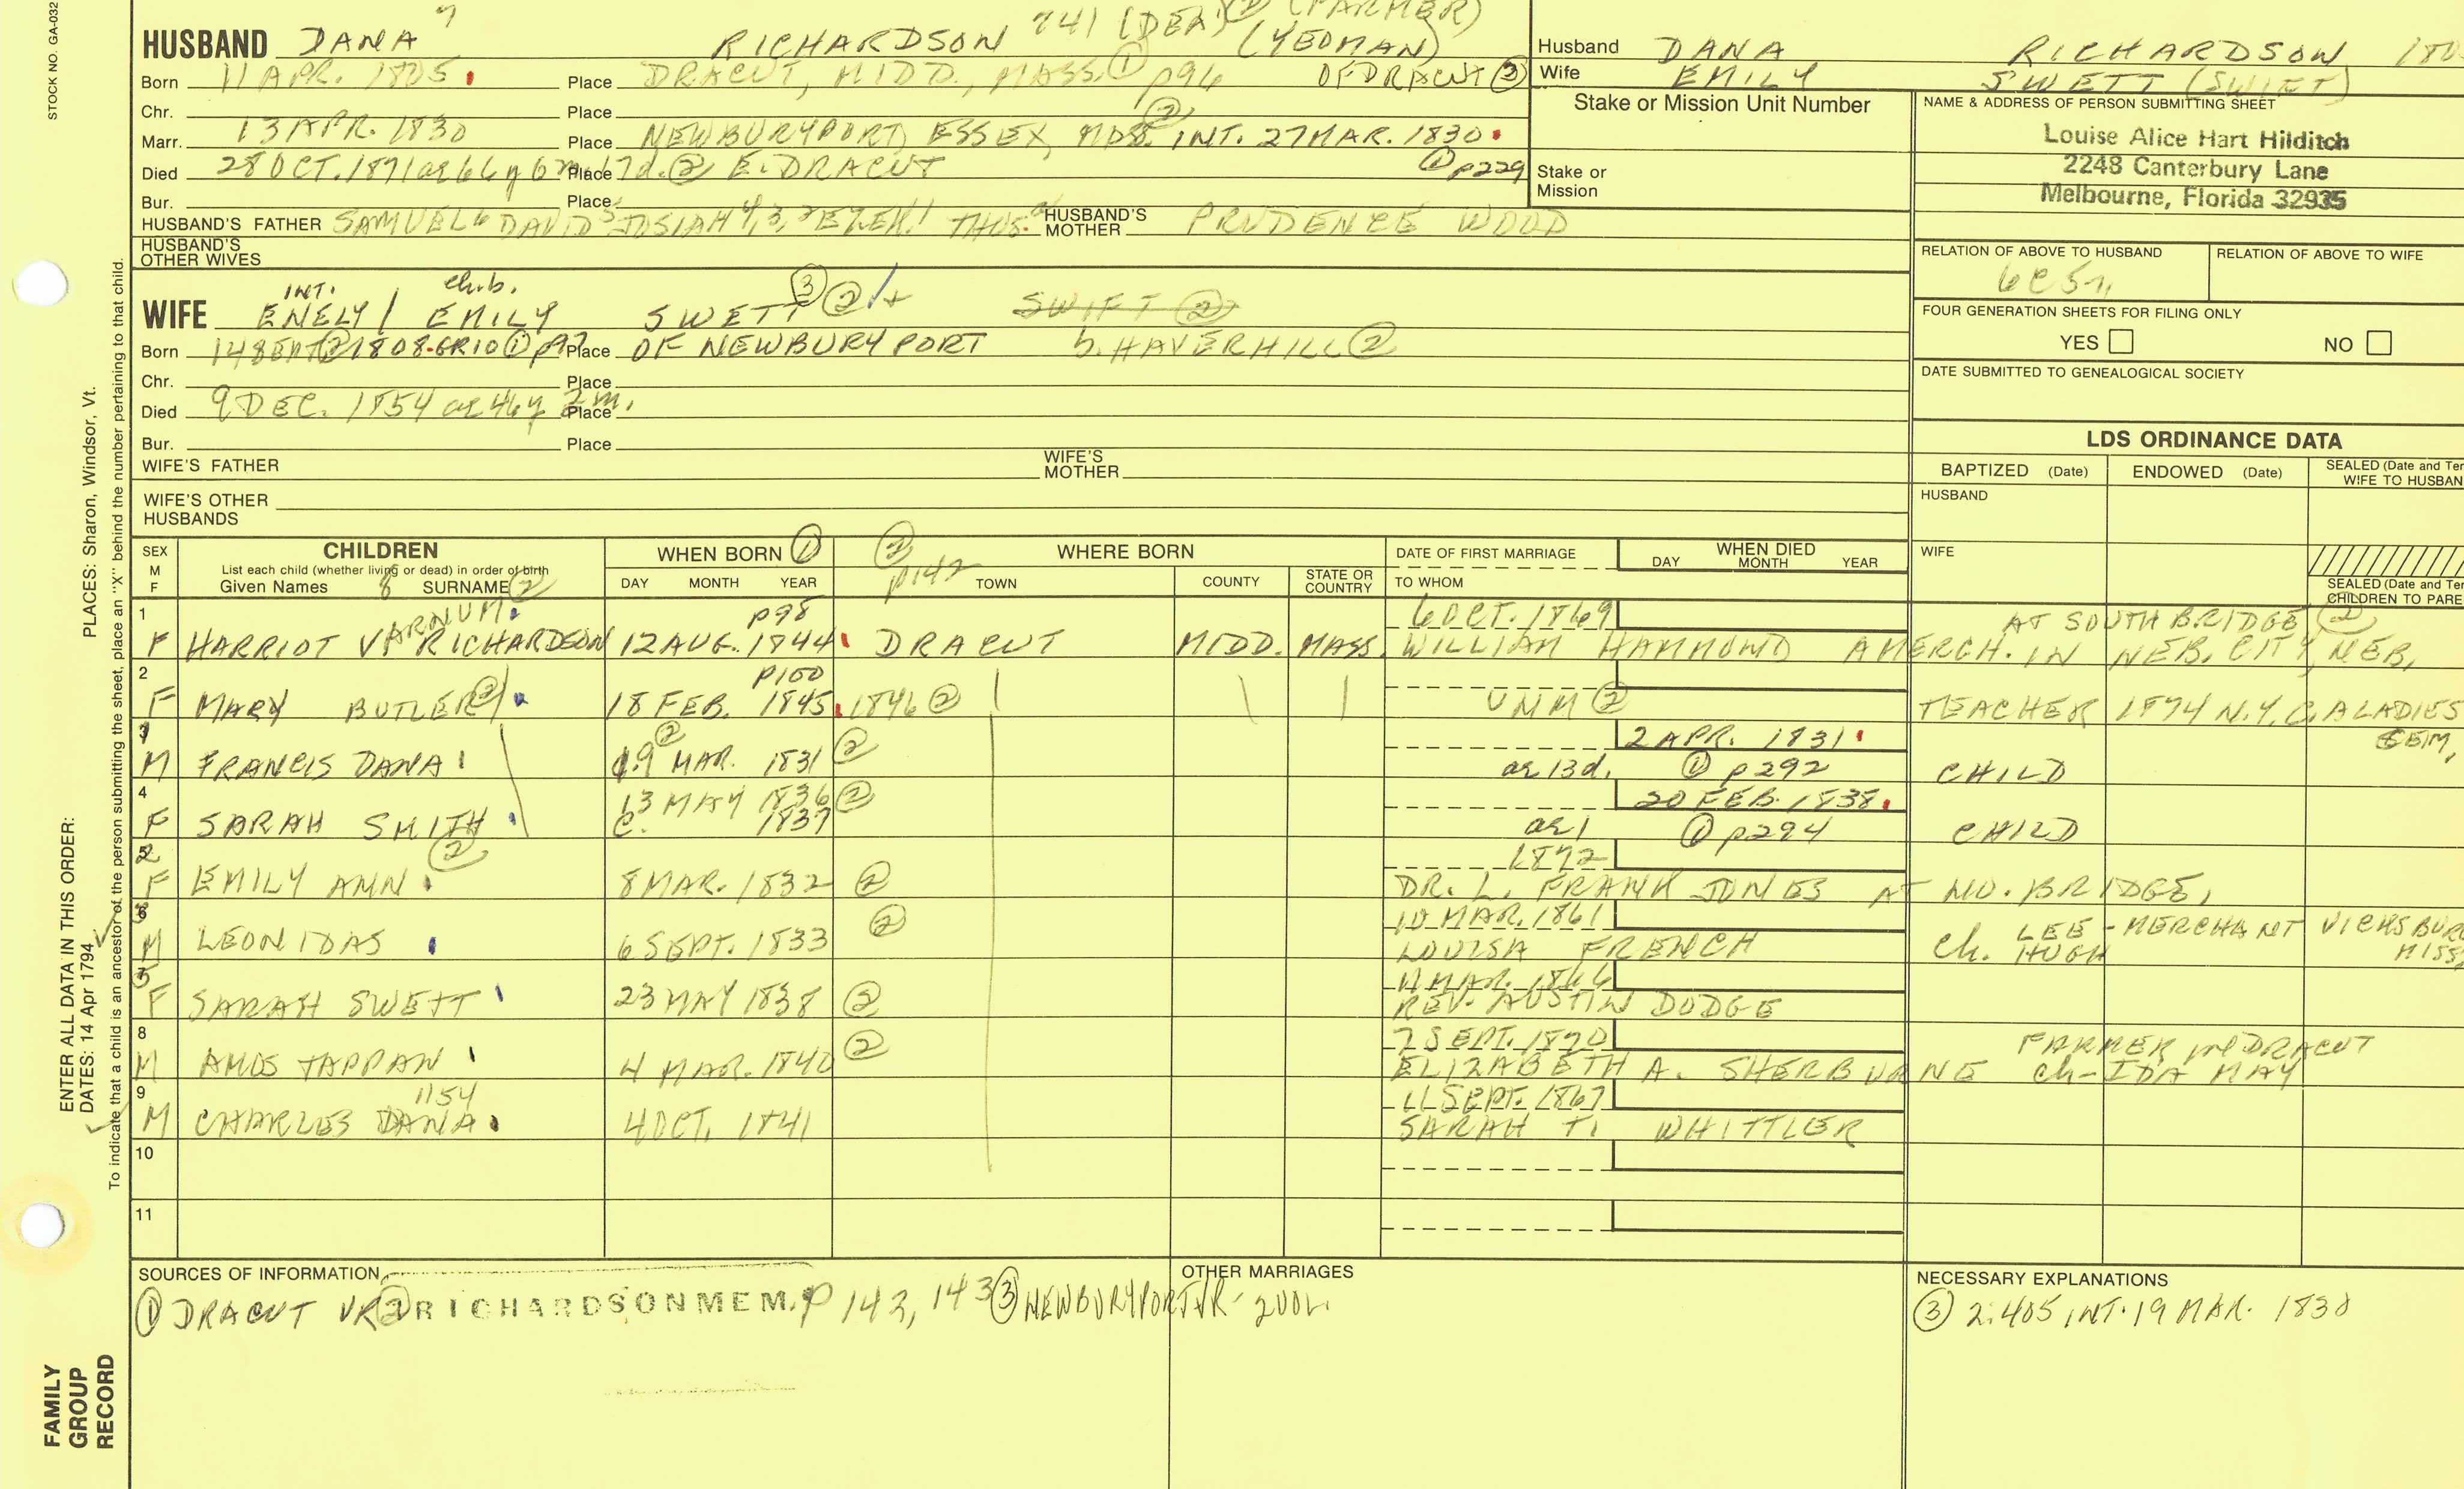 STOCK NO. GA-032
7
741 (DEA) ② (FARMER)
HUSBAND DANA RICHARDSON (YEOMAN)
Born 11 APR. 1805. Place DRACUT, MIDD, MASS. ① p96 OF DRACUT ③
Chr. Place
Marr. 13 APR. 1830 Place NEWBURYPORT, ESSEX, MASS. ② INT. 27 MAR. 1830.
Died 28 OCT. 1871 ae 66 y 6 m 17 d. ② Place E. DRACUT ① p229
Bur. Place
HUSBAND'S FATHER SAMUEL 6 DAVID 5 JOSIAH 4, 3, 2 EZEK. 1 THOS. HUSBAND'S MOTHER PRUDENCE WOOD
HUSBAND'S OTHER WIVES
Husband DANA RICHARDSON 180
Wife EMILY SWETT (SWIFT)
Stake or Mission Unit Number
Stake or Mission
NAME & ADDRESS OF PERSON SUBMITTING SHEET
Louise Alice Hart Hilditch
2248 Canterbury Lane
Melbourne, Florida 32935
RELATION OF ABOVE TO HUSBAND RELATION OF ABOVE TO WIFE
6C5r
FOUR GENERATION SHEETS FOR FILING ONLY
YES NO
DATE SUBMITTED TO GENEALOGICAL SOCIETY
INT. ch.b.
WIFE ENELY / EMILY SWETT ③ ② SWIFT ②
Born 14 SEPT ② 1808. GR10 ① p97 Place OF NEWBURYPORT b. HAVERHILL ②
Chr. Place
Died 9 DEC. 1854 ae 46 y 2 m. Place
Bur. Place
WIFE'S FATHER WIFE'S MOTHER
WIFE'S OTHER HUSBANDS
LDS ORDINANCE DATA
BAPTIZED (Date) ENDOWED (Date) SEALED (Date and Tem
WIFE TO HUSBAN
HUSBAND
WIFE
SEALED (Date and Tem
CHILDREN TO PARE
SEX M F
CHILDREN
List each child (whether living or dead) in order of birth
Given Names 8 SURNAME ②
WHEN BORN ①
DAY MONTH YEAR
② p142 WHERE BORN
TOWN COUNTY STATE OR COUNTRY
DATE OF FIRST MARRIAGE
TO WHOM
WHEN DIED
DAY MONTH YEAR
1 VARNUM. p98 6 OCT. 1869 AT SOUTHBRIDGE ②
F HARRIOT V RICHARDSON 12 AUG. 1844. DRACUT MIDD. MASS. WILLIAM HAMMOND A MERCH. IN NEB. CITY, NEB.
2 p100
F MARY BUTLER ② 18 FEB. 1845. 1846 ② UNM ② TEACHER 1874 N.Y.C. A LADIES SEM,
3 ② 2 APR. 1831.
M FRANCIS DANA 19 MAR. 1831 ② ae 13 d. ① p292 CHILD
4 13 MAY 1836 ② 20 FEB. 1838.
F SARAH SMITH C. 1837 ae 1 ① p294 CHILD
2 ② 1872
F EMILY ANN 8 MAR. 1832 ② DR. L. FRANK JONES AT NO. BRIDGE,
6 ② 10 MAR. 1861 LEE - MERCHANT VICKSBUR
M LEONIDAS 6 SEPT. 1833 LOUISA FRENCH ch. HUGH MISS
5 11 MAR. 1866
F SARAH SWETT 23 MAY 1838 ② REV. AUSTIN DODGE
8 7 SEPT. 1870 FARMER IN DRACUT
M AMOS TAPPAN 4 MAR. 1840 ② ELIZABETH A. SHERBURNE ch- IDA MAY
9 1154 11 SEPT. 1867
M CHARLES DANA. 4 OCT. 1841 SARAH T. WHITTLER
10
11
SOURCES OF INFORMATION
① DRACUT VR ② RICHARDSON MEM. p 142, 143 ③ NEWBURYPORT VR - 2 VOL.
OTHER MARRIAGES
NECESSARY EXPLANATIONS
③ 2:405 INT. 19 MAR. 1830
ENTER ALL DATA IN THIS ORDER:
DATES: 14 Apr 1794 PLACES: Sharon, Windsor, Vt.
To indicate that a child is an ancestor of the person submitting the sheet, place an "X" behind the number pertaining to that child.
FAMILY GROUP RECORD